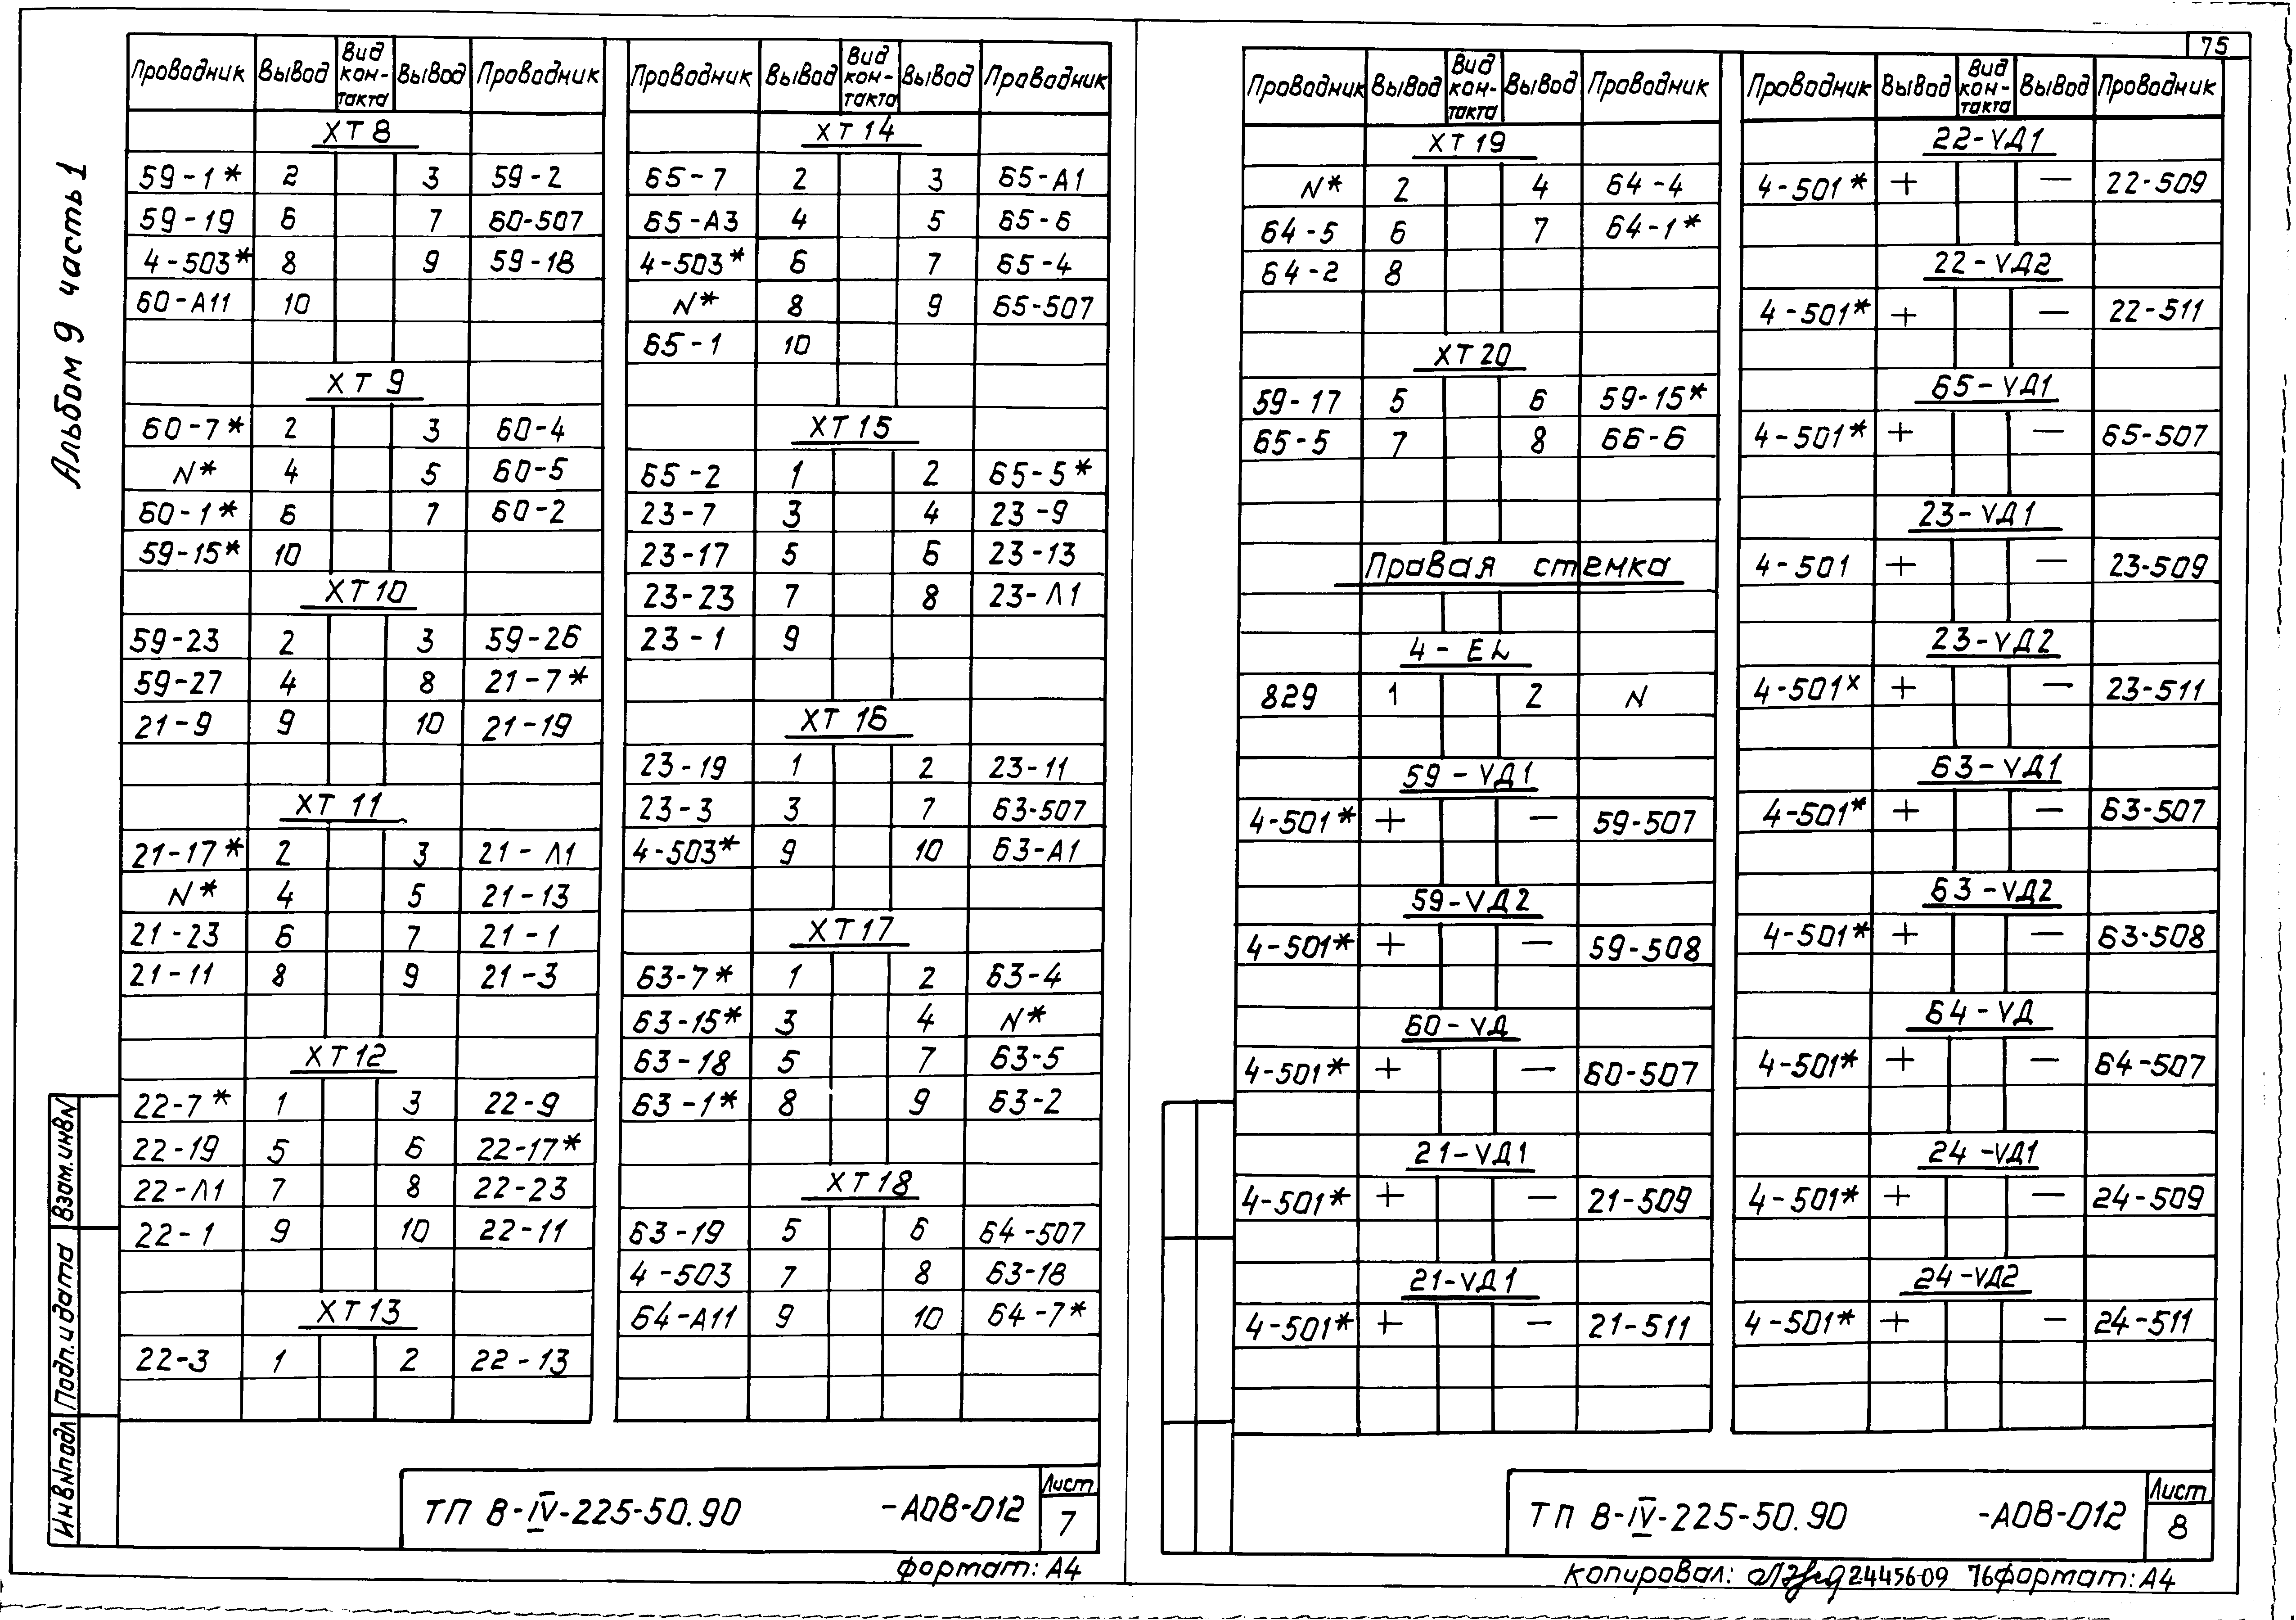 Альбом 9 часть 1
Проводник Вывод Вид кон-такта Вывод Проводник
ХТ8
59-1* 2 3 59-2
59-19 6 7 60-507
4-503* 8 9 59-18
60-А11 10
ХТ9
60-7* 2 3 60-4
N* 4 5 60-5
60-1* 6 7 60-2
59-15* 10
ХТ10
59-23 2 3 59-26
59-27 4 8 21-7*
21-9 9 10 21-19
ХТ11
21-17* 2 3 21-Л1
N* 4 5 21-13
21-23 6 7 21-1
21-11 8 9 21-3
ХТ12
22-7* 1 3 22-9
22-19 5 6 22-17*
22-Л1 7 8 22-23
22-1 9 10 22-11
ХТ13
22-3 1 2 22-13
Проводник Вывод Вид кон-такта Вывод Проводник
ХТ14
65-7 2 3 65-А1
65-А3 4 5 65-6
4-503* 6 7 65-4
N* 8 9 65-507
65-1 10
ХТ15
65-2 1 2 65-5*
23-7 3 4 23-9
23-17 5 6 23-13
23-23 7 8 23-Л1
23-1 9
ХТ16
23-19 1 2 23-11
23-3 3 7 63-507
4-503* 9 10 63-А1
ХТ17
63-7* 1 2 63-4
63-15* 3 4 N*
63-18 5 7 63-5
63-1* 8 9 63-2
ХТ18
63-19 5 6 64-507
4-503 7 8 63-18
64-А11 9 10 64-7*
Взам.инвN
Подп.и дата
ИнвNподл
ТП В-IV-225-50.90 -АОВ-012
Лист
7
формат: А4
75
Проводник Вывод Вид кон-такта Вывод Проводник
ХТ19
N* 2 4 64-4
64-5 6 7 64-1*
64-2 8
ХТ20
59-17 5 6 59-15*
65-5 7 8 66-6
Правая стенка
4-EL
829 1 2 N
59-VД1
4-501* + — 59-507
59-VД2
4-501* + — 59-508
60-VД
4-501* + — 60-507
21-VД1
4-501* + — 21-509
21-VД1
4-501* + — 21-511
Проводник Вывод Вид кон-такта Вывод Проводник
22-VД1
4-501* + — 22-509
22-VД2
4-501* + — 22-511
65-VД1
4-501* + — 65-507
23-VД1
4-501 + — 23-509
23-VД2
4-501х + — 23-511
63-VД1
4-501* + — 63-507
63-VД2
4-501* + — 63-508
64-VД
4-501* + — 64-507
24-VД1
4-501* + — 24-509
24-VД2
4-501* + — 24-511
ТП В-IV-225-50.90 -АОВ-012
Лист
8
копировал: 24456-09 76 формат: А4